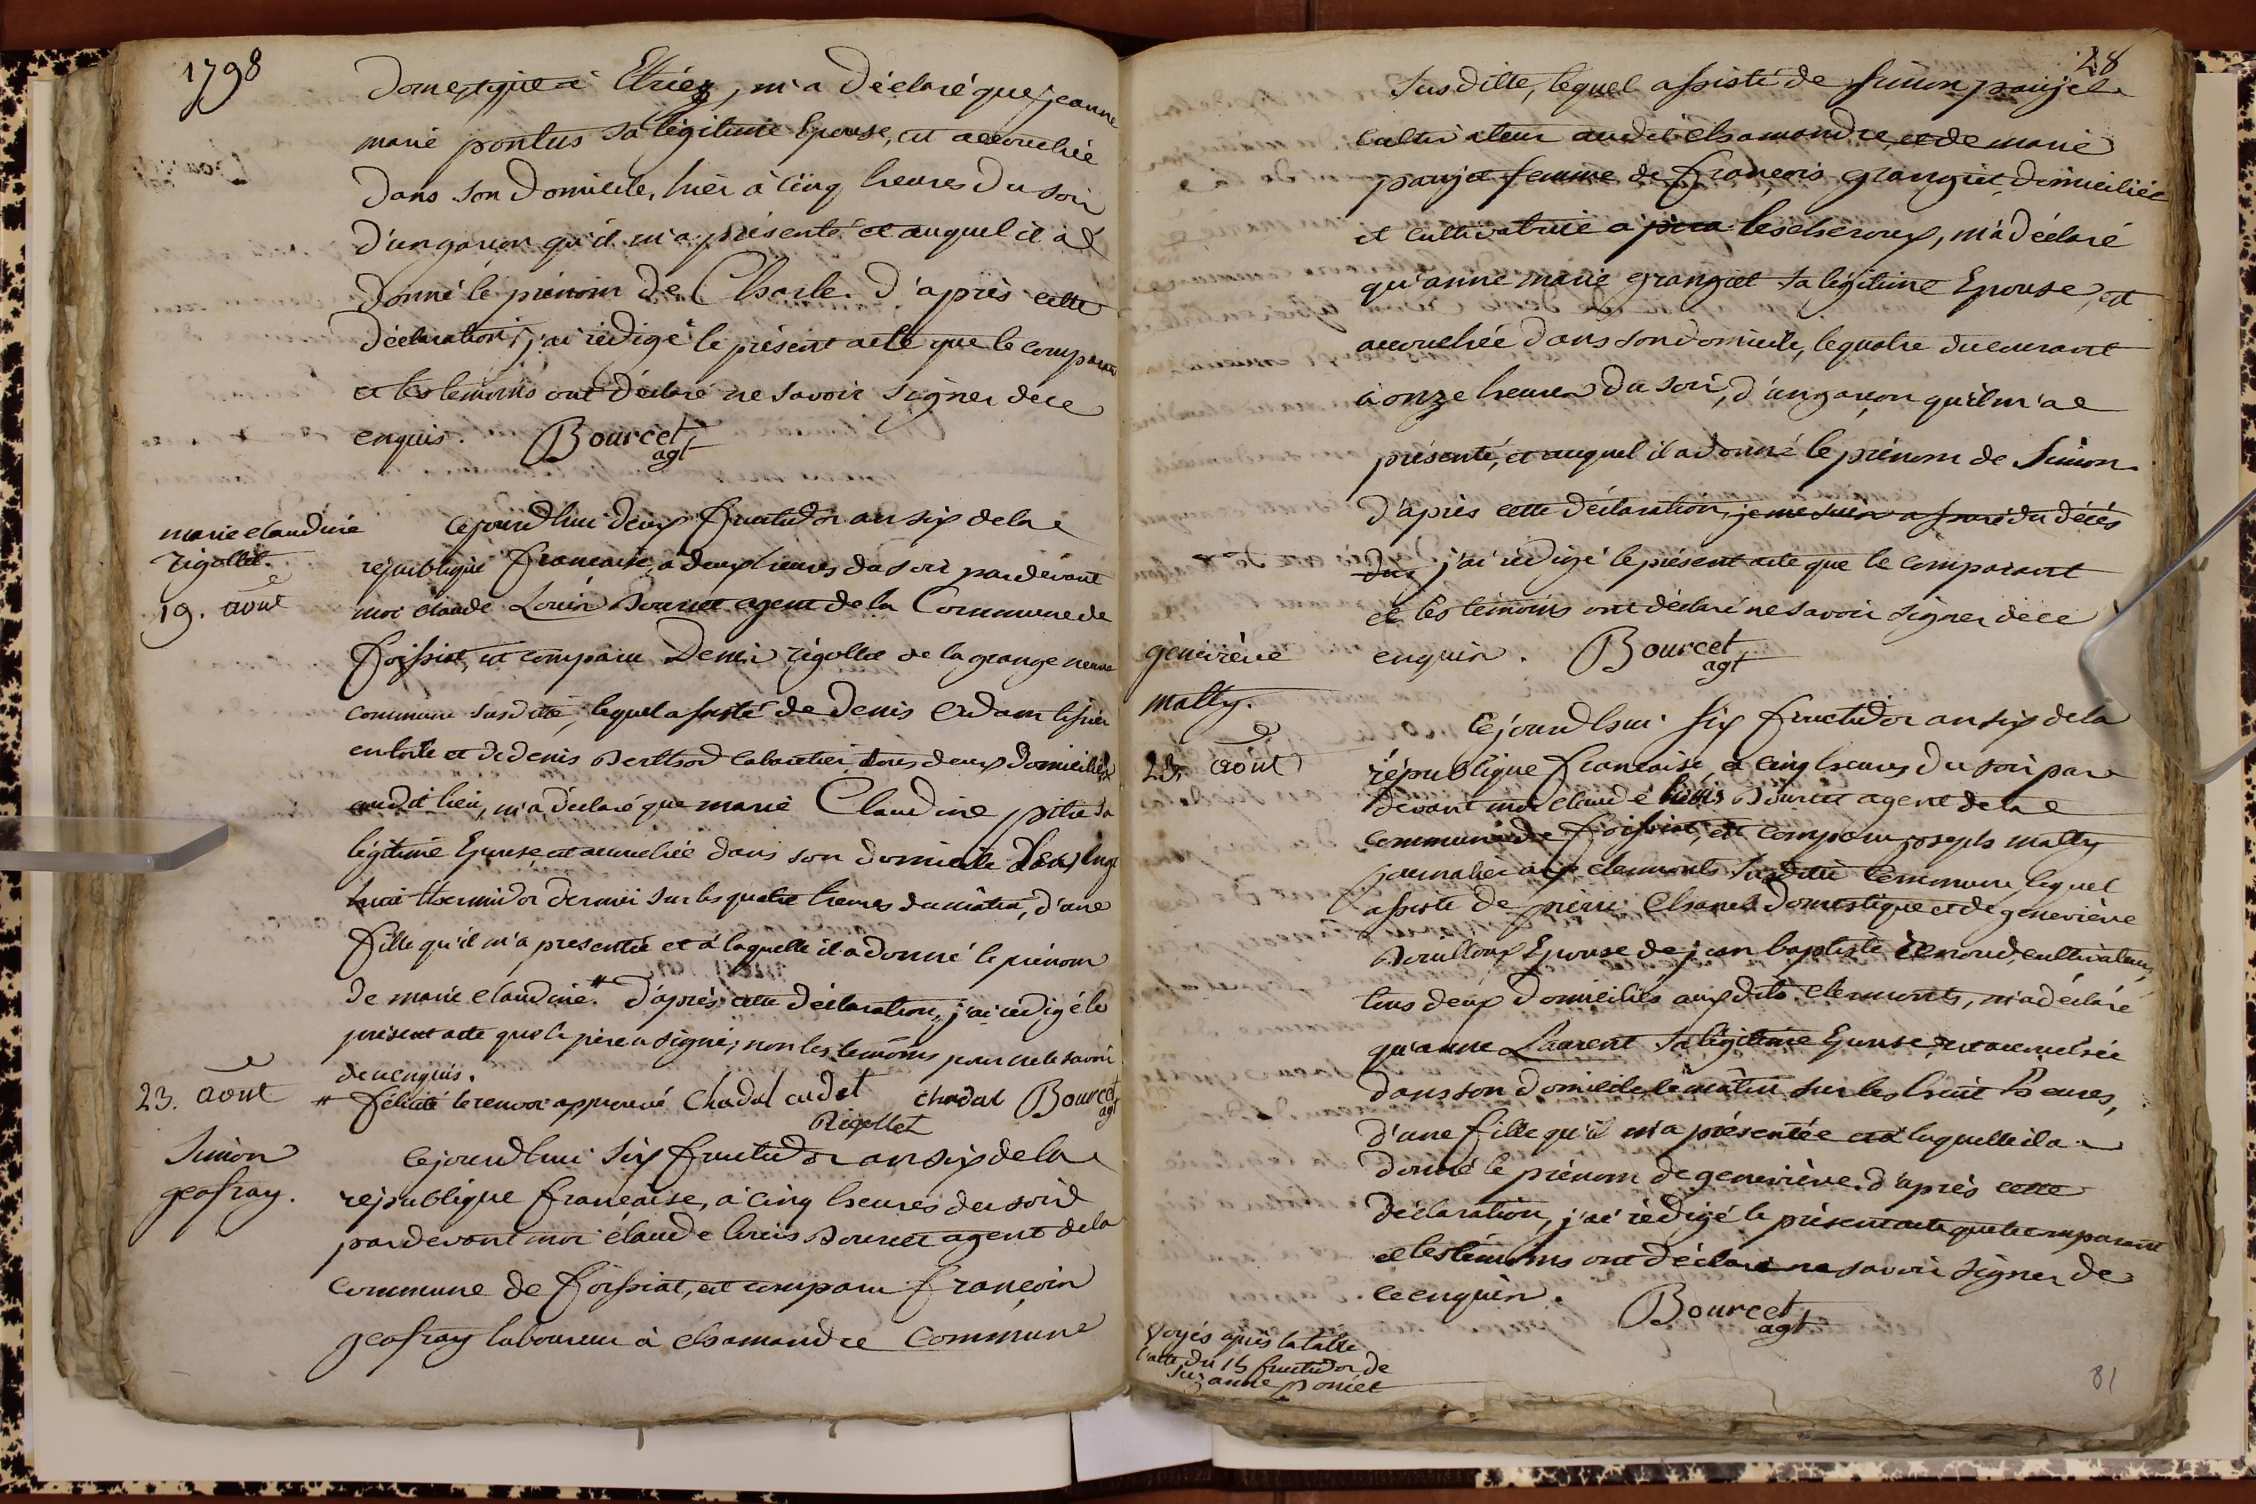 1798
domestique à Etréz, m'a déclaré que jeanne
marie pontus sa légitime Epouse, est accouchée
dans son domicile, hier à cinq heures du soir
d'un garçon qu'il m'a présenté et auquel il a
donné le prénom de Charle. D'après cette
déclaration, j'ai rédigé le présent acte que le comparant
et les temoins ont déclaré ne savoir signer de ce
enquis. Bourcet
agt
marie claudine
rigollet.
19. aout
Cejourd'hui deux fructidor an six de la
république francaise, a deux heures du soir pardevant
moi claude Louis Bourcet agent de la Commune de
foissiat, est comparu Denis rigollet de la grange neuve
commune susdite, lequel assisté de denis Adam tissier
en toile et de denis Berthod cabaretier tous deux domiciliés
audit lieu, m'a déclaré que marie Claudine pitre sa
légitime Epouse est accouchée dans son domicile le vingt
huit thermidor dernier sur les quatre heures du matin, d'une
fille qu'il m'a presentée et à laquelle il a donné le prénom
de marie claudine.# d'après cette déclaration, j'ai rédigé le
présent acte que le père a signé, non les temoins pour ne le savoir
de ce enquis.
# félicité le renvoi approuvé Chadal cadet chadal Bourcet
agt
Rigollet
23. aout
Simon
geofray.
Cejourd'hui six fructidor an six de la
république francaise, à cinq heures du soir
pardevant moi claude louis Bourcet agent de la
commune de foissiat, est comparu françois
geofray laboureur à chamandre commune
28
susditte, lequel assisté de Simon paujet
cultivateur audit chamandre, et de marie
paujet femme de françois grangiet domiciliée
et cultivatrice a les cheroux, m'a déclaré
qu'anne marie grangiet sa légitime Epouse, est
accouchée dans son domicile, le quatre du courant
à onze heures du soir, d'un garçon qu'il m'a
présenté, et auquel il a donné le prénom de Simon.
D'après cette déclaration, je me suis assuré du décès
dud j'ai rédigé le présent acte que le comparant
et les témoins ont déclaré ne savoir signer de ce
enquis. Bourcet
agt
geneviève
matty.
23. aout
Cejourd'hui six fructidor an six de la
république francaise à cinq heures du soir par
devant moi claude louis Bourcet agent de la
commune de foissiat, est comparu joseph matty
journalier aux clermonts susditte commune lequel
assisté de pierre Chanel domestique et de geneviève
Bouilloux Epouse de jean baptiste Lemond, cultivateurs,
tous deux domiciliés aux dits clermonts, m'a déclaré
qu'anne Laurent sa légitime Epouse, est accouchée
dans son domicile le matin sur les huit heures,
d'une fille qu'il m'a présentée et à laquelle il a
donné le prénom de geneviève. d'après cette
déclaration, j'ai rédigé le présent acte que le comparant
et les témoins ont déclaré ne savoir signer de
ce enquis.
Bourcet
agt
Voyés après la table
l'acte du 15 fructidor de
Suzanne Poncet
81